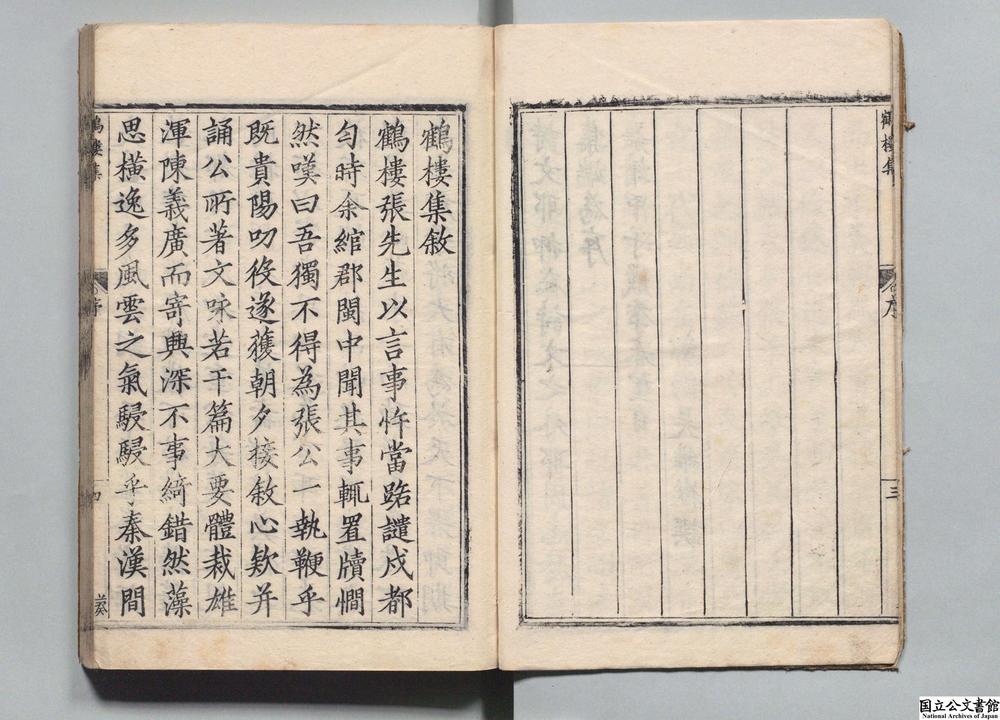 鶴樓集
序
三
鶴樓集敘
鶴樓張先生以言事忤當路譴戍都
勻時余綰郡閩中聞其事輒置牘憪
然嘆曰吾獨不得為張公一執鞭乎
既貴陽叨役遂獲朝夕掖敘心欵并
誦公所著文咏若干篇大要體裁雄
渾陳義廣而寄興深不事綺錯然藻
思橫逸多風雲之氣駸駸乎秦漢間
鶴樓集
序
四
国立公文書館
National Archives of Japan